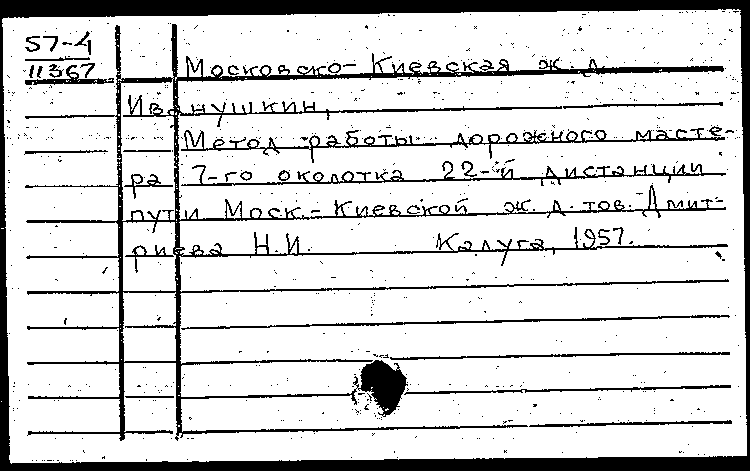 57-4
11367
Московско-Киевская ж. д.
Иванушкин,
Метод работы дорожного масте-
ра 7-го околотка 22-й дистанции
пути Моск.-Киевской ж. д. тов. Дмит-
риева Н.И. Калуга, 1957.